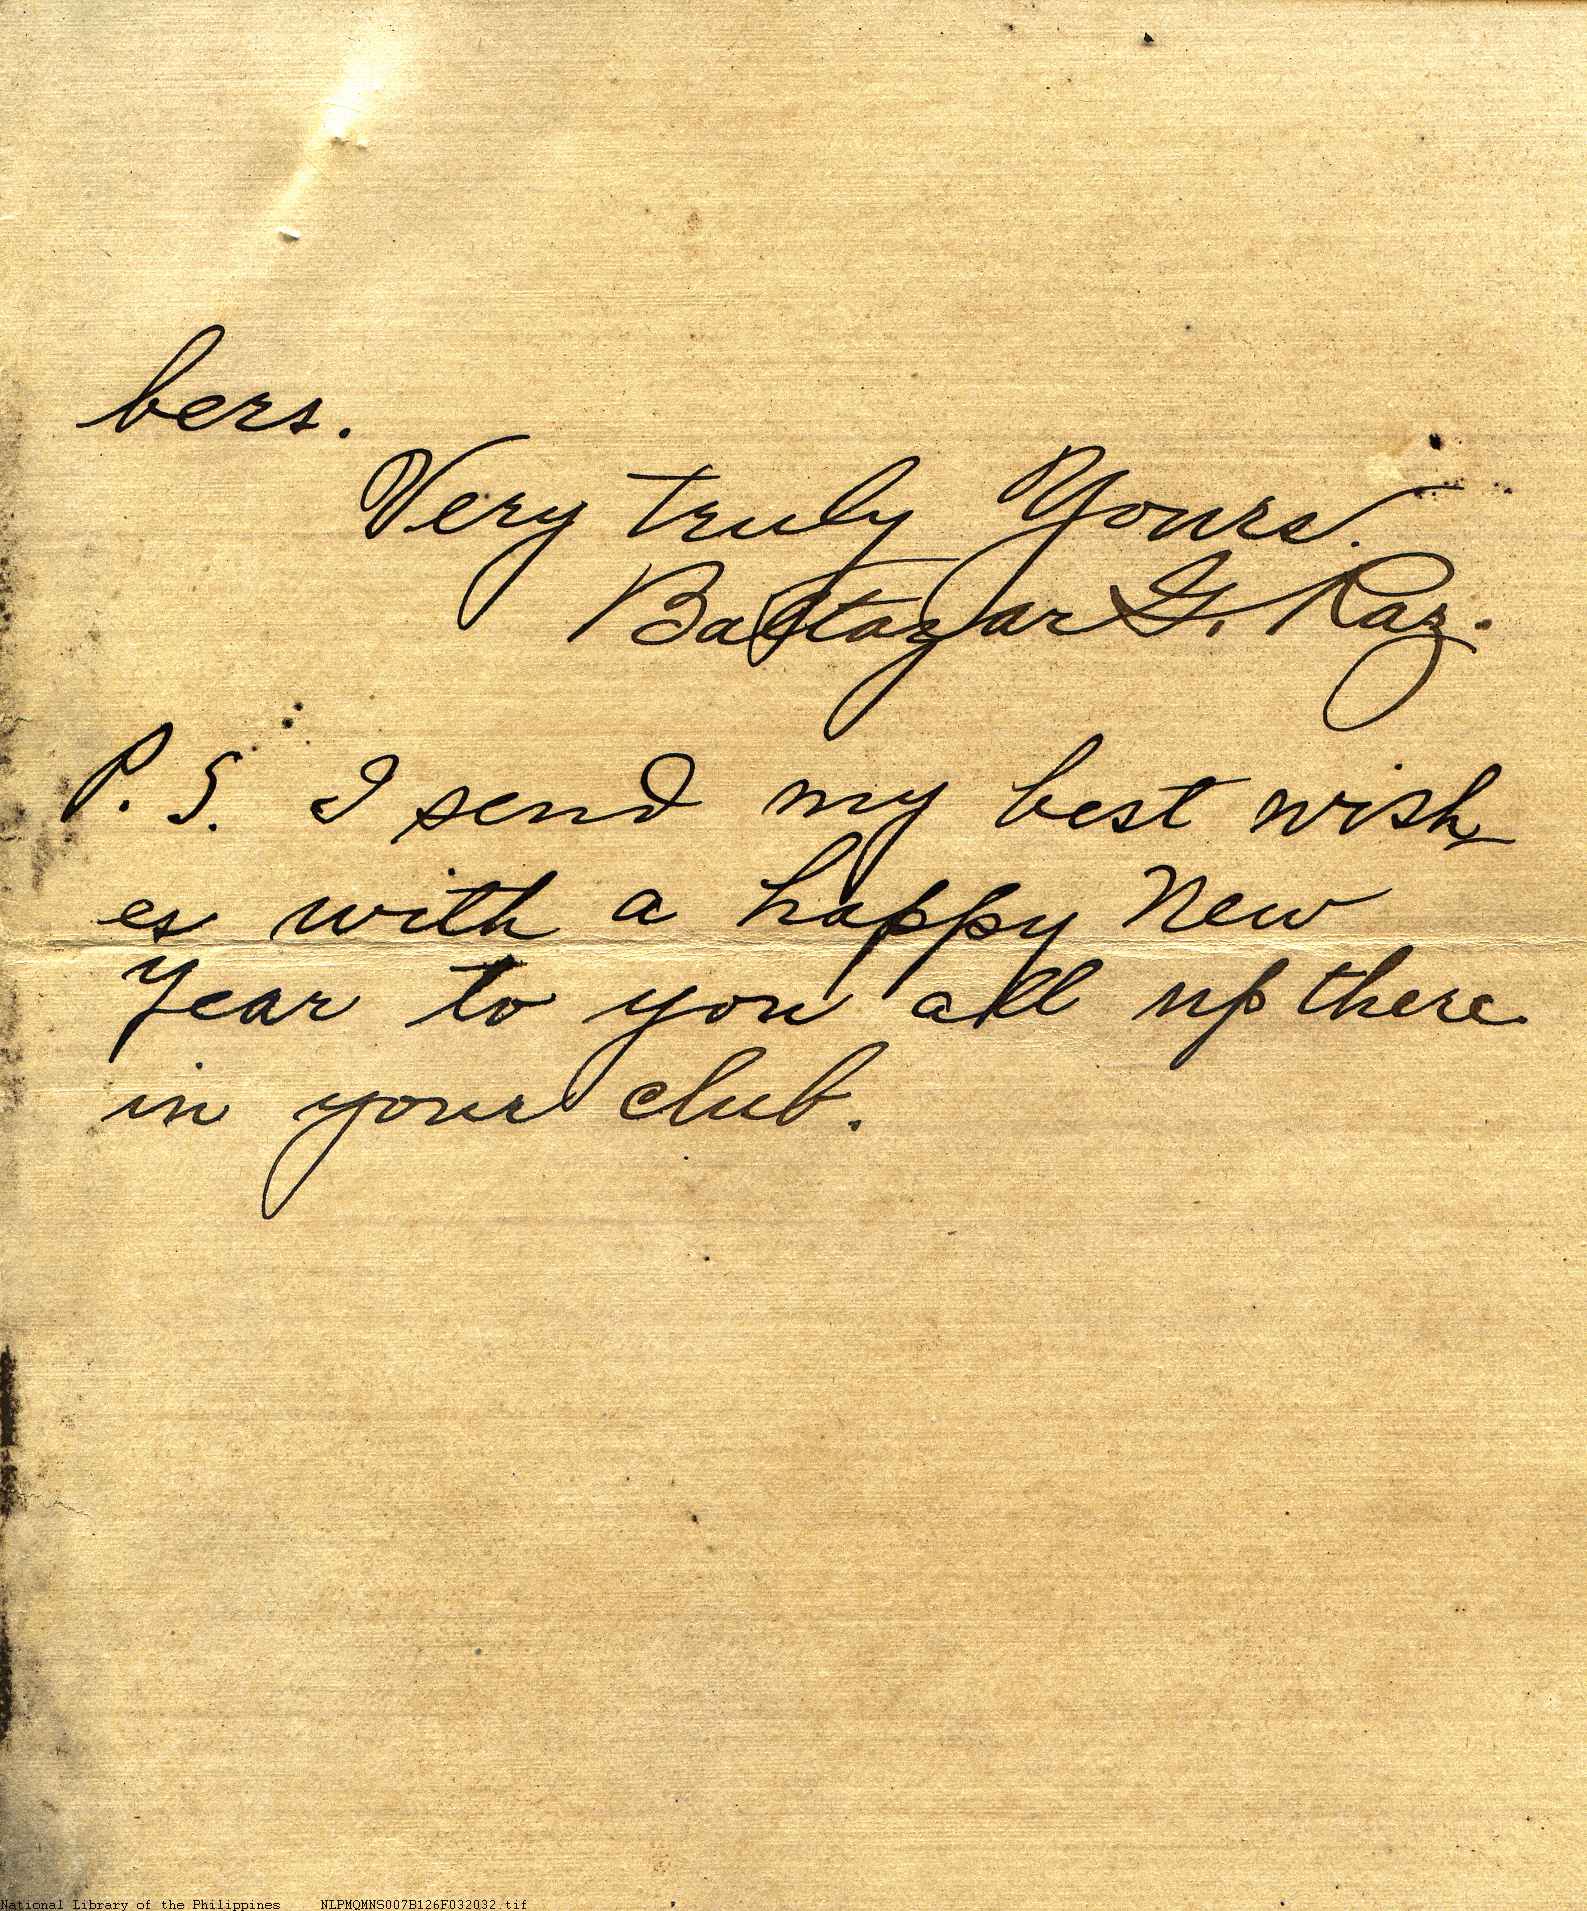 bers.
Very truly Yours.
Baltazar G. Raz.
P. S. I send my best wish
es with a happy New
Year to you all up there
in your club.
National Library of the Philippines NLPMQMNS007B126F032032.tif